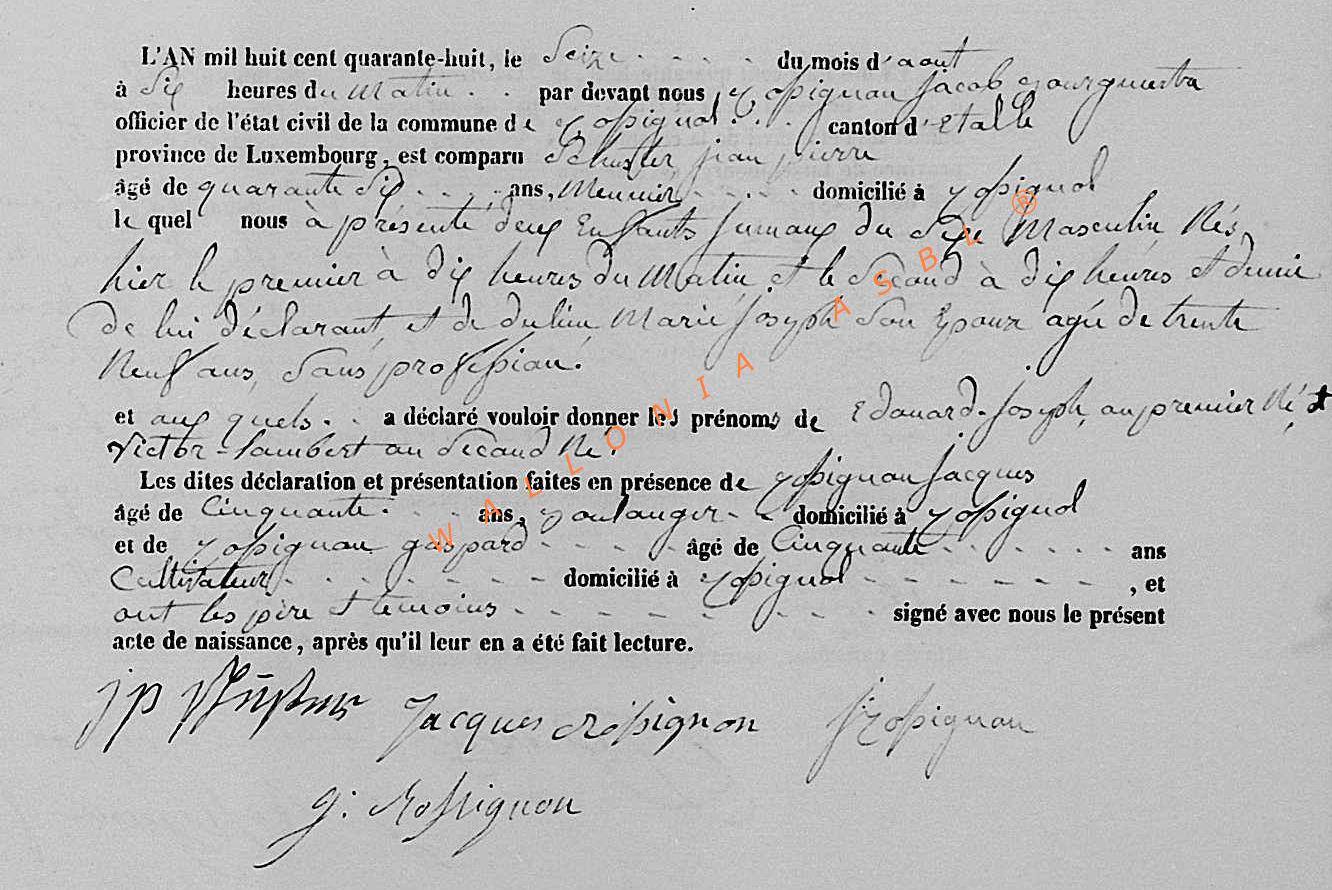 L'AN mil huit cent quarante-huit, le Seize . . . . du mois d'aout
à Six heures du Matin . . par devant nous Rossignon Jacob Bourguemetre
officier de l'état civil de la commune de Rossignol . . . canton d'Etalle
province de Luxembourg, est comparu Schuster jean pierre
âgé de quarante Six . . . . ans, Meunier . . . . domicilié à Rossignol
le quel nous à présenté deux Enfants Jumaux du Sexe Masculin Nés,
hier le premier à dix heures du Matin et le Second à dix heures et demie
de lui déclarant, et de Marie Joseph Son Epouze agée de trente
Neuf ans, Sans profession.
et aux quels . . a déclaré vouloir donner les prénoms de Edouard-Joseph, au premier Né, et
Victor-Lambert au Second Né.
Les dites déclaration et présentation faites en présence de Rossignon Jacques
âgé de Cinquante . . . ans, Boulanger - - domicilié à Rossignol
et de Rossignon gaspard - - - - - âgé de Cinquante . . . . . . . ans
Cultivateur - - - - - - - - domicilié à Rossignol - - - - - - - , et
ont les père et témoins - - - - - - - - - - signé avec nous le présent
acte de naissance, après qu'il leur en a été fait lecture.
jp Schuster Jacques Rossignon J Rossignon
g. Rossignon
WALLONIA ASBL ®